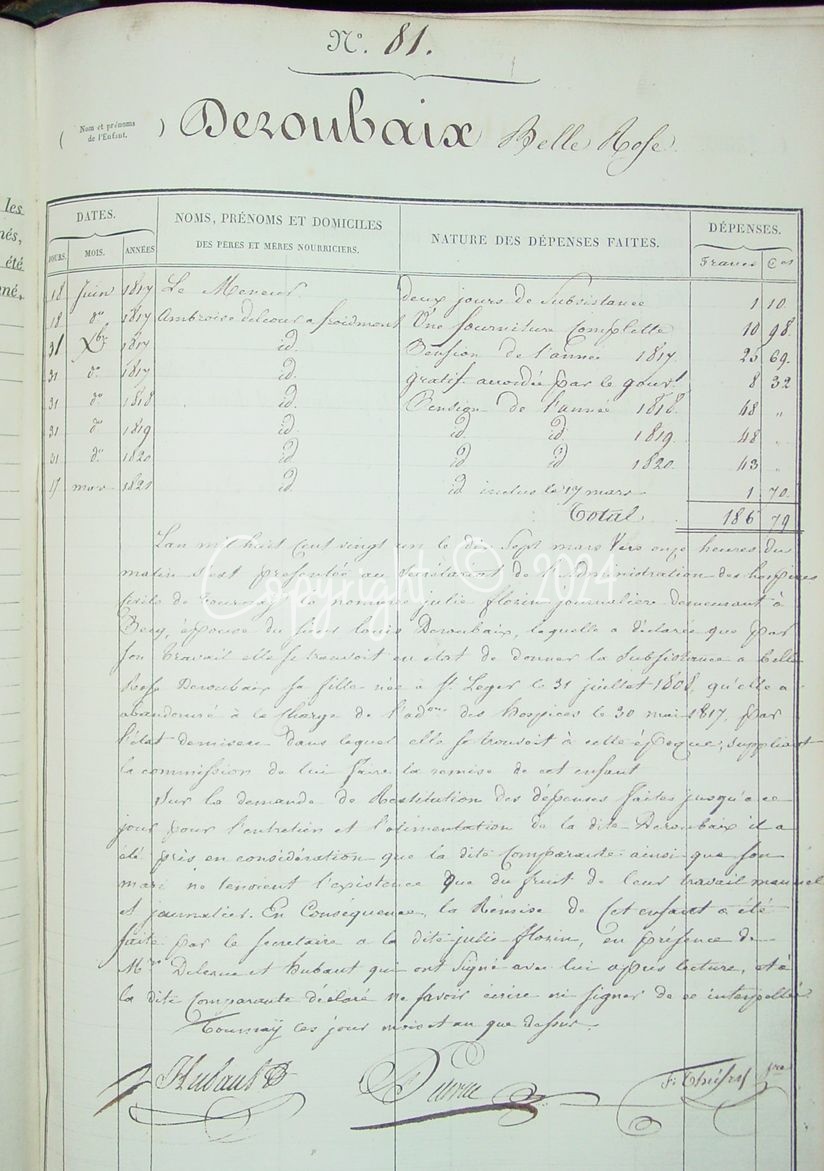 N°. 81.
( Nom et prénoms de l'Enfant. ) Deroubaix Belle Rose
les
nés,
été
né.
DATES. NOMS, PRÉNOMS ET DOMICILES DES PÈRES ET MÈRES NOURRICIERS. NATURE DES DÉPENSES FAITES. DÉPENSES.
JOURS. MOIS. ANNÉES Francs Ces
18 Juin 1817 Le Meneur deux jours de Subsistance 1 10
18 do 1817 Ambroise delcour a froidmont Une fourniture Complette 10 98
31 Xbre 1817 id. Pension de l'année 1817 25 69
31 do 1817 id. gratif. accordée par le gouvt 8 32
31 do 1818 id. Pension de l'année 1818 48 "
31 do 1819 id. id. id. 1819 48 "
31 do 1820 id. id id 1820 43 "
17 mars 1821 id. id inclus le 17 mars 1 70
Total 186 79
L'an mil huit cent vingt un le dix Sept mars Vers onze heures du
matin S'est présentée au Secrétariat de l'administration des hospices
Civils de Tournay la nommée julie florin journalière demeurant à
Becq, épouse du Sieur louis Deroubaix, laquelle a déclarée que par
Son travail elle se trouvoit en état de donner la Subsistance a belle
Rose Deroubaix sa fille née à St Leger le 31 juillet 1808, qu'elle a
abandonné à la Charge de l'adon des hospices le 30 mai 1817, par
l'état de misere dans lequel elle se trouvoit à cette époque, Suppliant
la commission de lui faire la remise de cet enfant
Sur la demande de Restitution des dépenses faites jusqu'a ce
jour pour l'entretien et l'alimentation de la dite Deroubaix il a
été pris en considération que la dite Comparante ainsi que son
mari ne tenoient l'existence que du fruit de leur travail manuel
et journalier. En Conséquence, la Remise de Cet enfant a été
faite par le Secretaire a la dite julie florin, en présence de
Mrs et hubaut qui ont Signé avec lui apres lecture, et à
la dite Comparante déclaré ne savoir écrire ni signer de ce interpellée
Tournay les jour mois et an que dessus.
Hubaut
Copyright © 2024